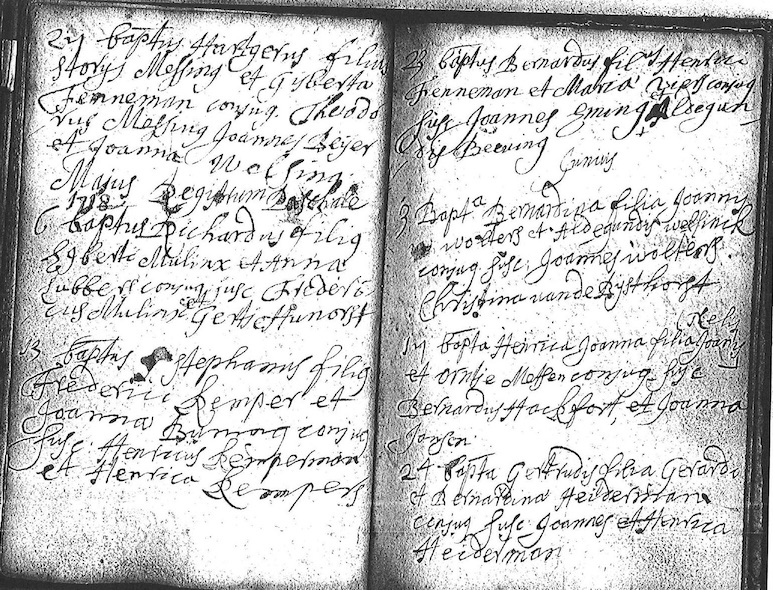 24 baptus Hartgerus filius
Storijs Messing et Gijsberta
Fenneman conjug. Theodo
rus Messing Joannes Beijer
et Joanna Welsing.
Majus Registrum Paschale
1718
6 baptus Richardus filig
Egberti Mulinx et Anna
Lubbers conjug et susc Frederi
cus Mulinx Gerts
13 baptus Stephanus filig
Frederic Kemper et
Joanna Buning conjug
susc. Henricus Kemperman
et Henrica Kempers
23 baptus Bernardus fili9 Henrici
Fenneman et Maria conjug
susc Joannes Eming Aldegun
dis Beeving
Junius
3 Bapta Bernardina filia Joannis
wolters et Aldegundis wessinck
conjug susc. Joannes wolters.
Christina vande Rijsthorst
14 bapta Henrica Joanna filia Joanis
et Orntje Messen conjug. susc
Bernardus Hackfort, et Joanna
Jansen
24 bapta Gertrudis filia Gerardi
et Bernardina Heiderman
conjug susc Joannes et Henrica
Heiderman